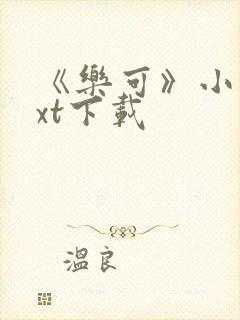 《樂可》小
xt下載
溫良